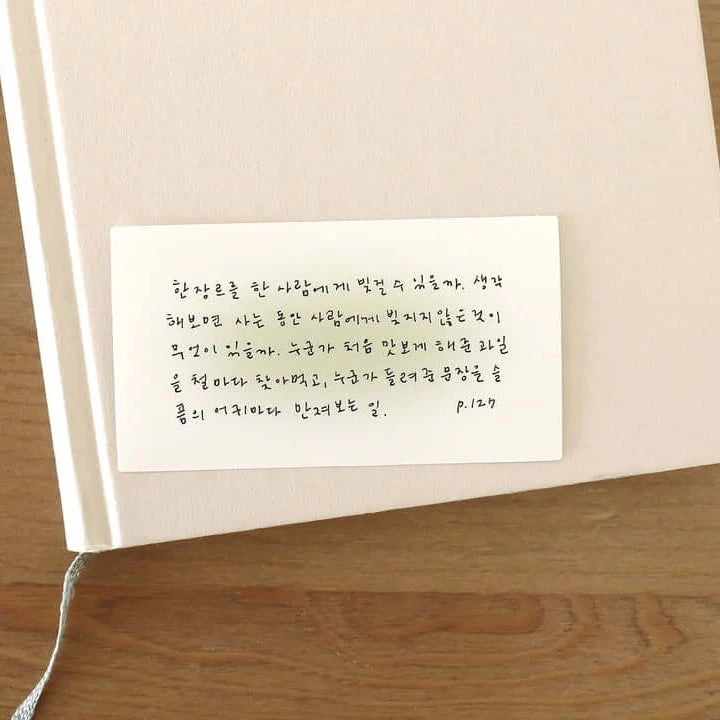 한 장르를 한 사람에게 빚질 수 있을까. 생각
해보면 사는 동안 사람에게 빚지지 않은 것이
무엇이 있을까. 누군가 처음 맛보게 해준 과일
을 철마다 찾아먹고, 누군가 들려준 문장을 슬
픔의 어귀마다 만져보는 일. p.127